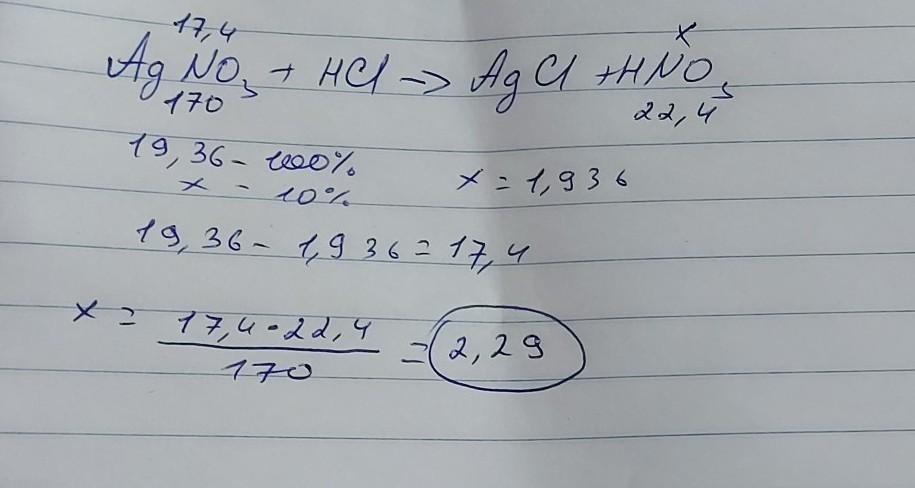 17,4 x
AgNO3 + HCl → AgCl + HNO3
170 22,4
19,36 - 100%
x - 10% x = 1,936
19,36 - 1,936 = 17,4
x = 17,4 · 22,4 / 170 = 2,29